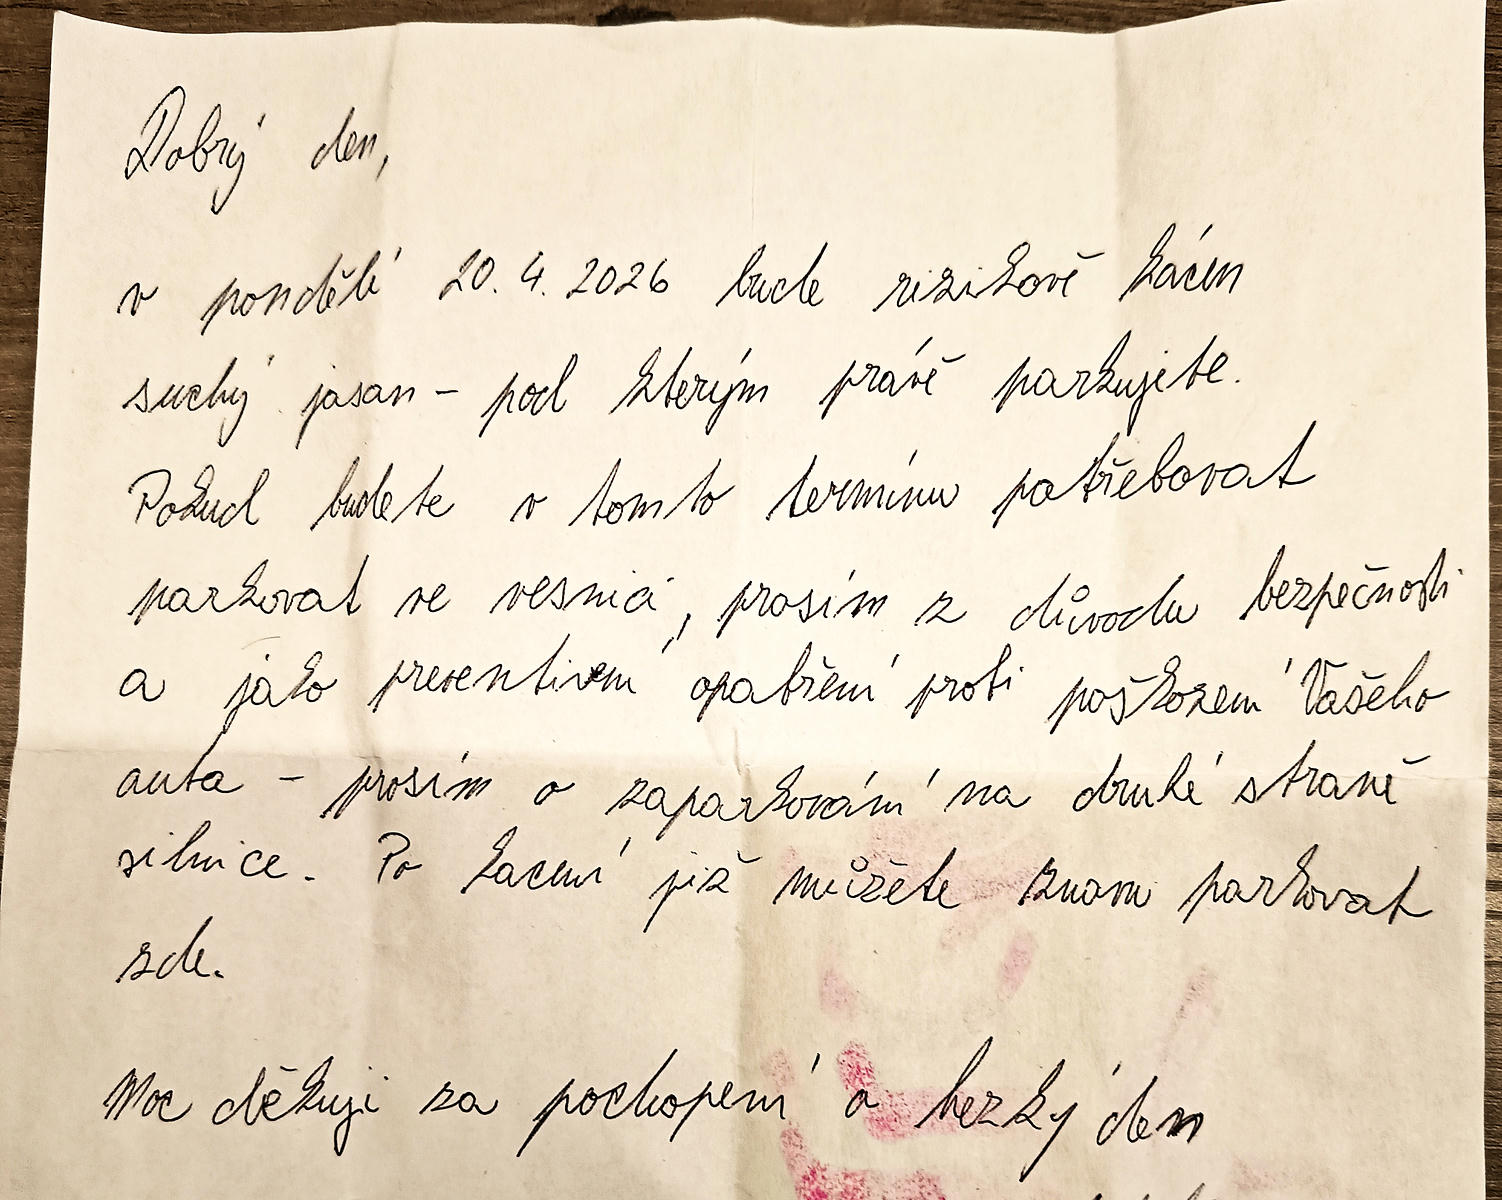 Dobrý den,
v pondělí 20.4.2026 bude rizikově kácen
suchý jasan – pod kterým právě parkujete.
Pokud budete v tomto termínu potřebovat
parkovat ve vesnici, prosím z důvodu bezpečnosti
a jako preventivní opatření proti poškození Vašeho
auta – prosím o zaparkování na druhé straně
silnice. Po kácení již můžete znovu parkovat
zde.
Moc děkuji za pochopení a hezký den